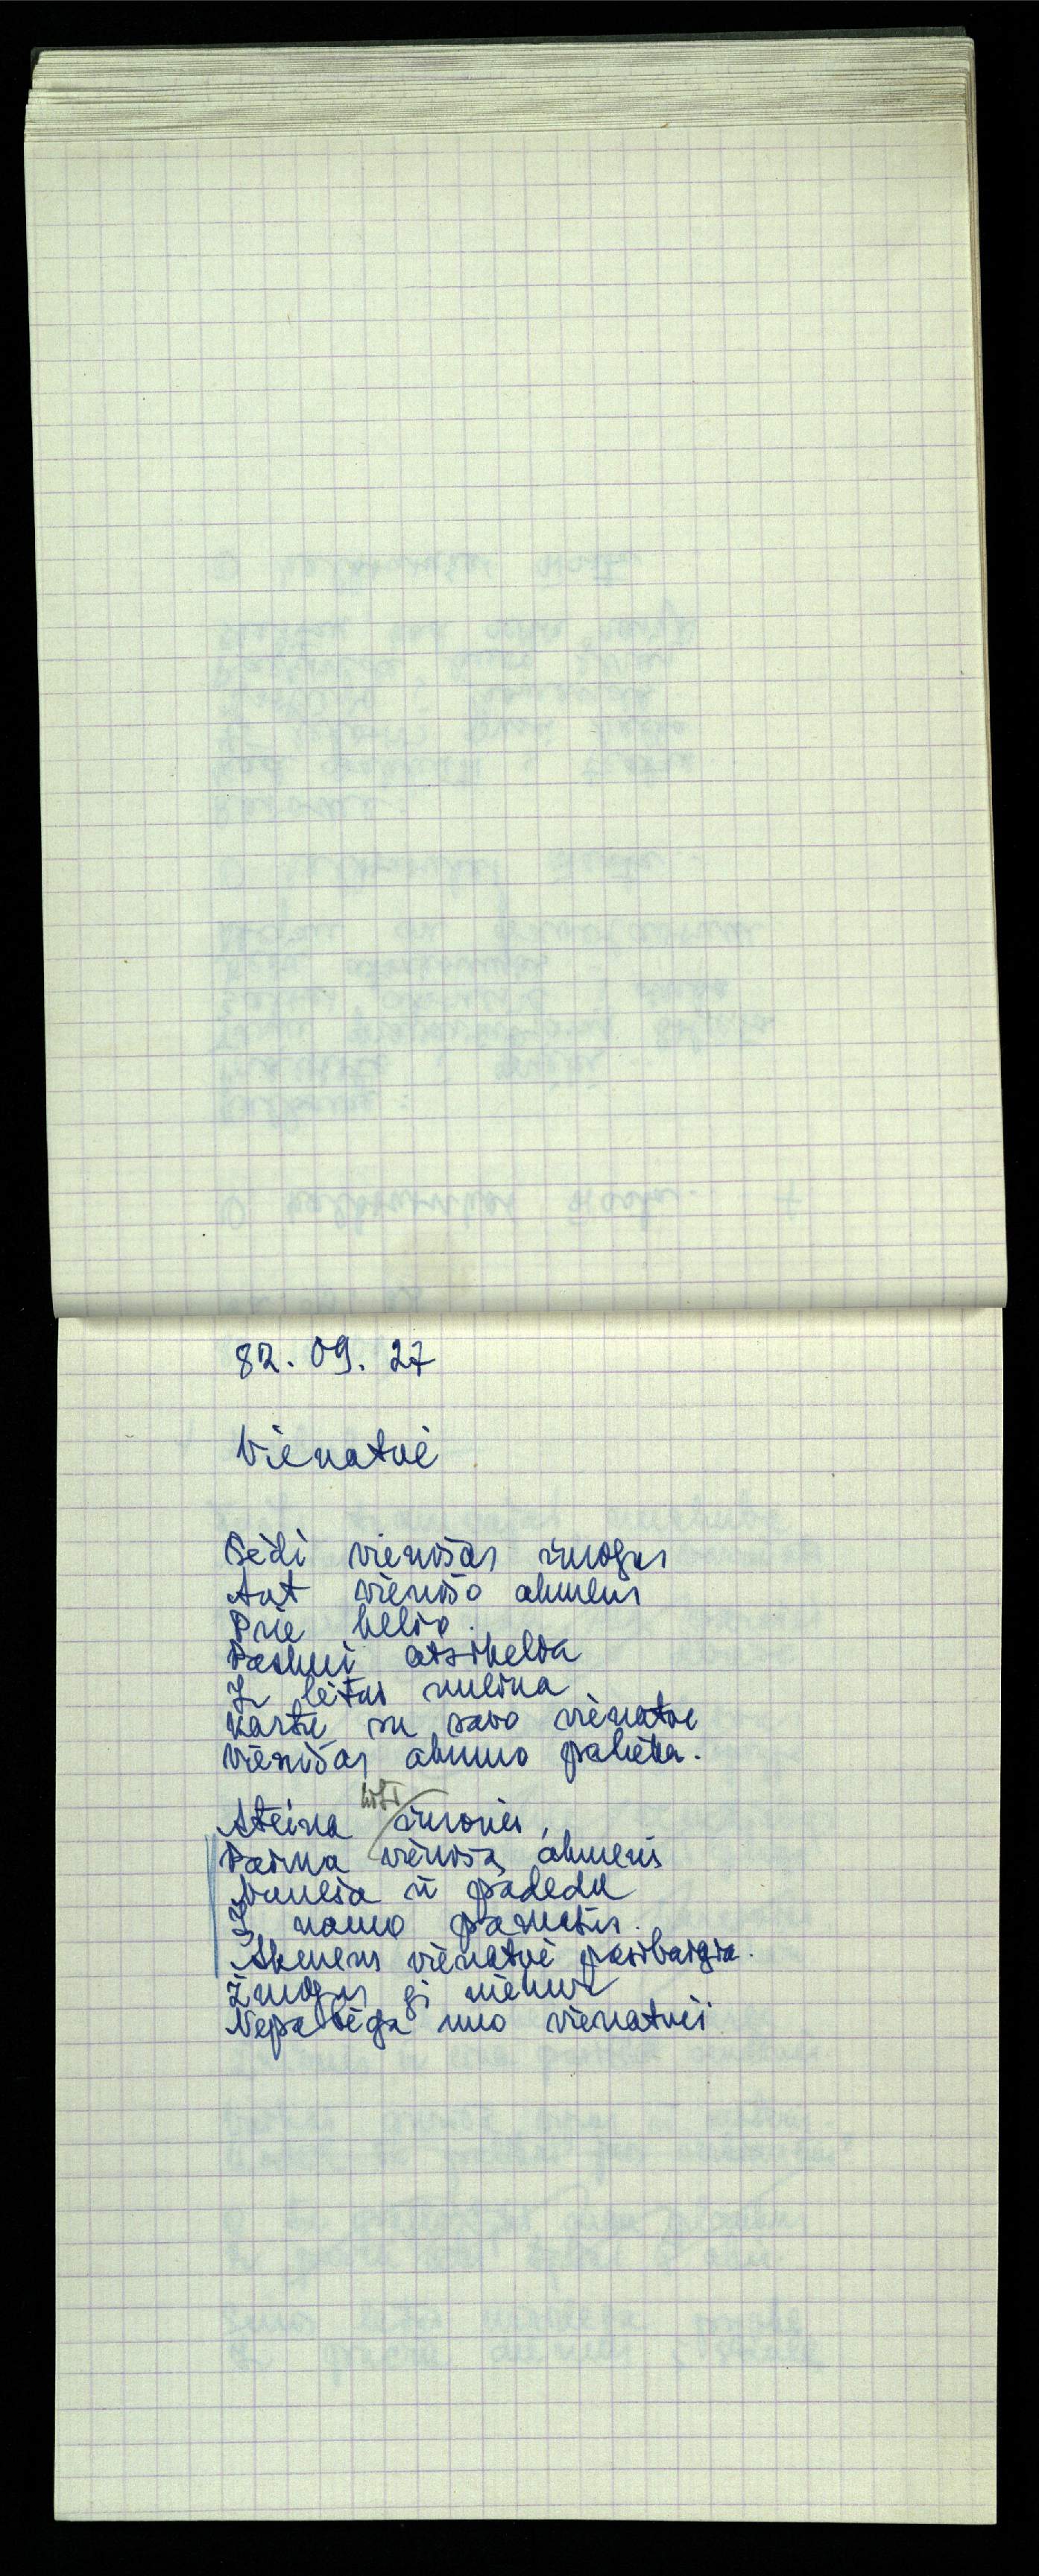 82. 09. 27
Vienatvė
Sėdi vienišas žmogus
Ant vienišo akmens
Prie kelio.
Paskui atsikelia
Ir lėtai nueina
Kartu su savo vienatve
Vienišas akmuo palieka.
kiti
Ateina žmonės,
Paima vienišą akmenį
Nuneša ir padeda
Į namo pamatus.
Akmens vienatvė pasibaigia.
Žmogus gi niekur
Nepabėga nuo vienatvės